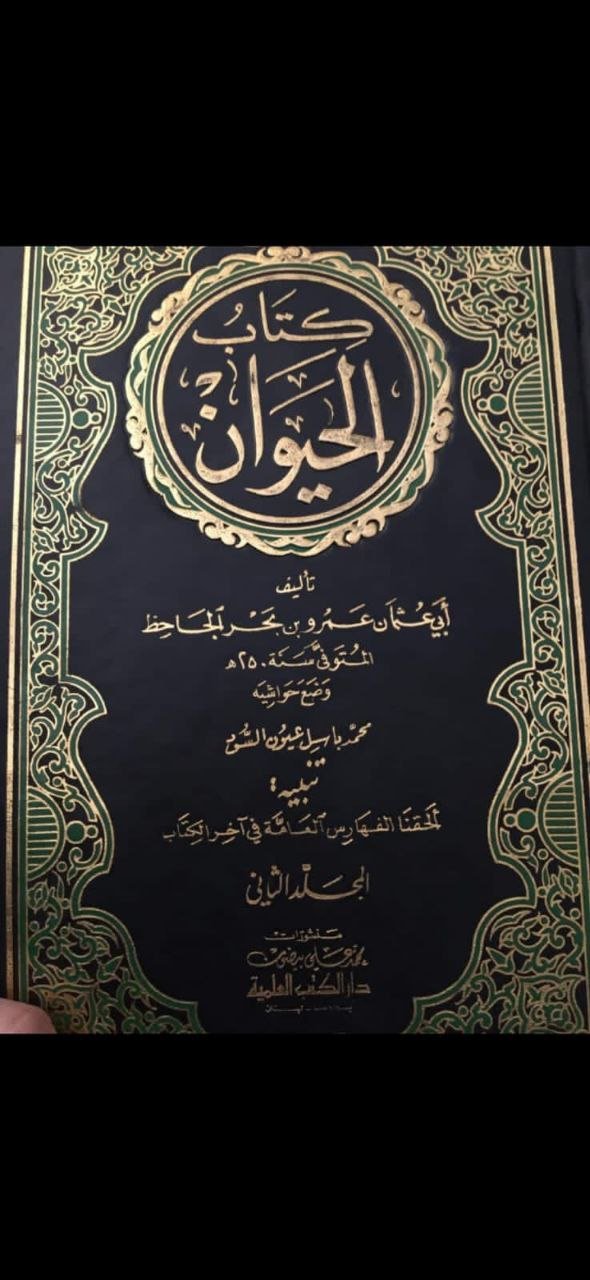 كتاب
الحيوان
تأليف
أبي عثمان عمرو بن بحر الجاحظ
المتوفى سنة ٢٥٠ هـ
وضع حواشيه
محمد باسل عيون السود
تنبيه:
ألحقنا الفهارس العامة في آخر الكتاب
المجلد الثاني
منشورات
محمد علي بيضون
دار الكتب العلمية
بيروت - لبنان